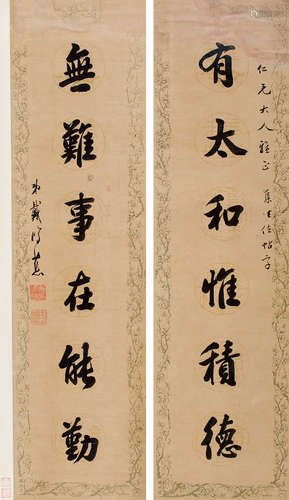 有太和惟積德
仁元大人雅正
集坐位帖字
無難事在能勤
弟戴